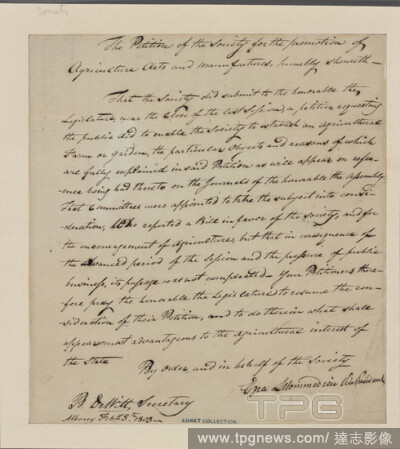 Society
The Petition of the Society for the promotion of
Agriculture Arts and manufactures, humbly sheweth—
That the Society did submit to the honorable the
Legislature, near the Close of the last Session, a petition requesting
the public aid to enable the Society to establish an Agricultural
Farm or garden, the particular objects and reasons of which
are fully explained in said Petition as will appear on refer-
ence being had thereto on the Journals of the honorable the Assembly
that Committees were appointed to take the subject into consi-
deration, who reported a Bill in favor of the Society, and for
the encouragement of Agriculture, but that in consequence of
the advanced period of the Session and the pressure of public
business, its passage was not compleated— Your Petitioners there-
fore pray the honorable the Legislature to resume the con-
sideration of their Petition, and to do therein what shall
appear most advantageous to the agricultural interest of
the State
By order and in behalf of the Society
Ezra L'Hommedieu
B. DeWitt, Secretary
Albany Feb. 1803
EMMET COLLECTION.
TPG
www.tpgnews.com / 達志影像